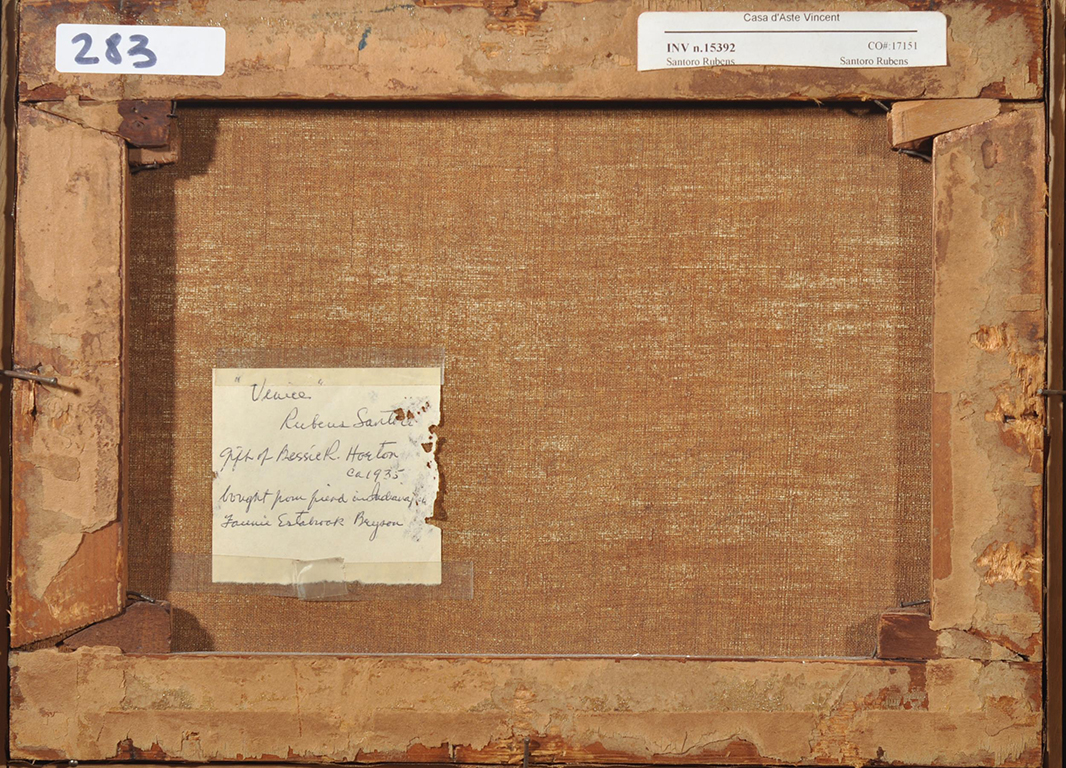 283
Casa d'Aste Vincent
INV n.15392 CO#:17151
Santoro Rubens Santoro Rubens
"Venice"
Rubens Santoro
Gift of Bessie R. Horton
ca 1935
bought from friend in Indianap
Fannie Estabrook Bryson